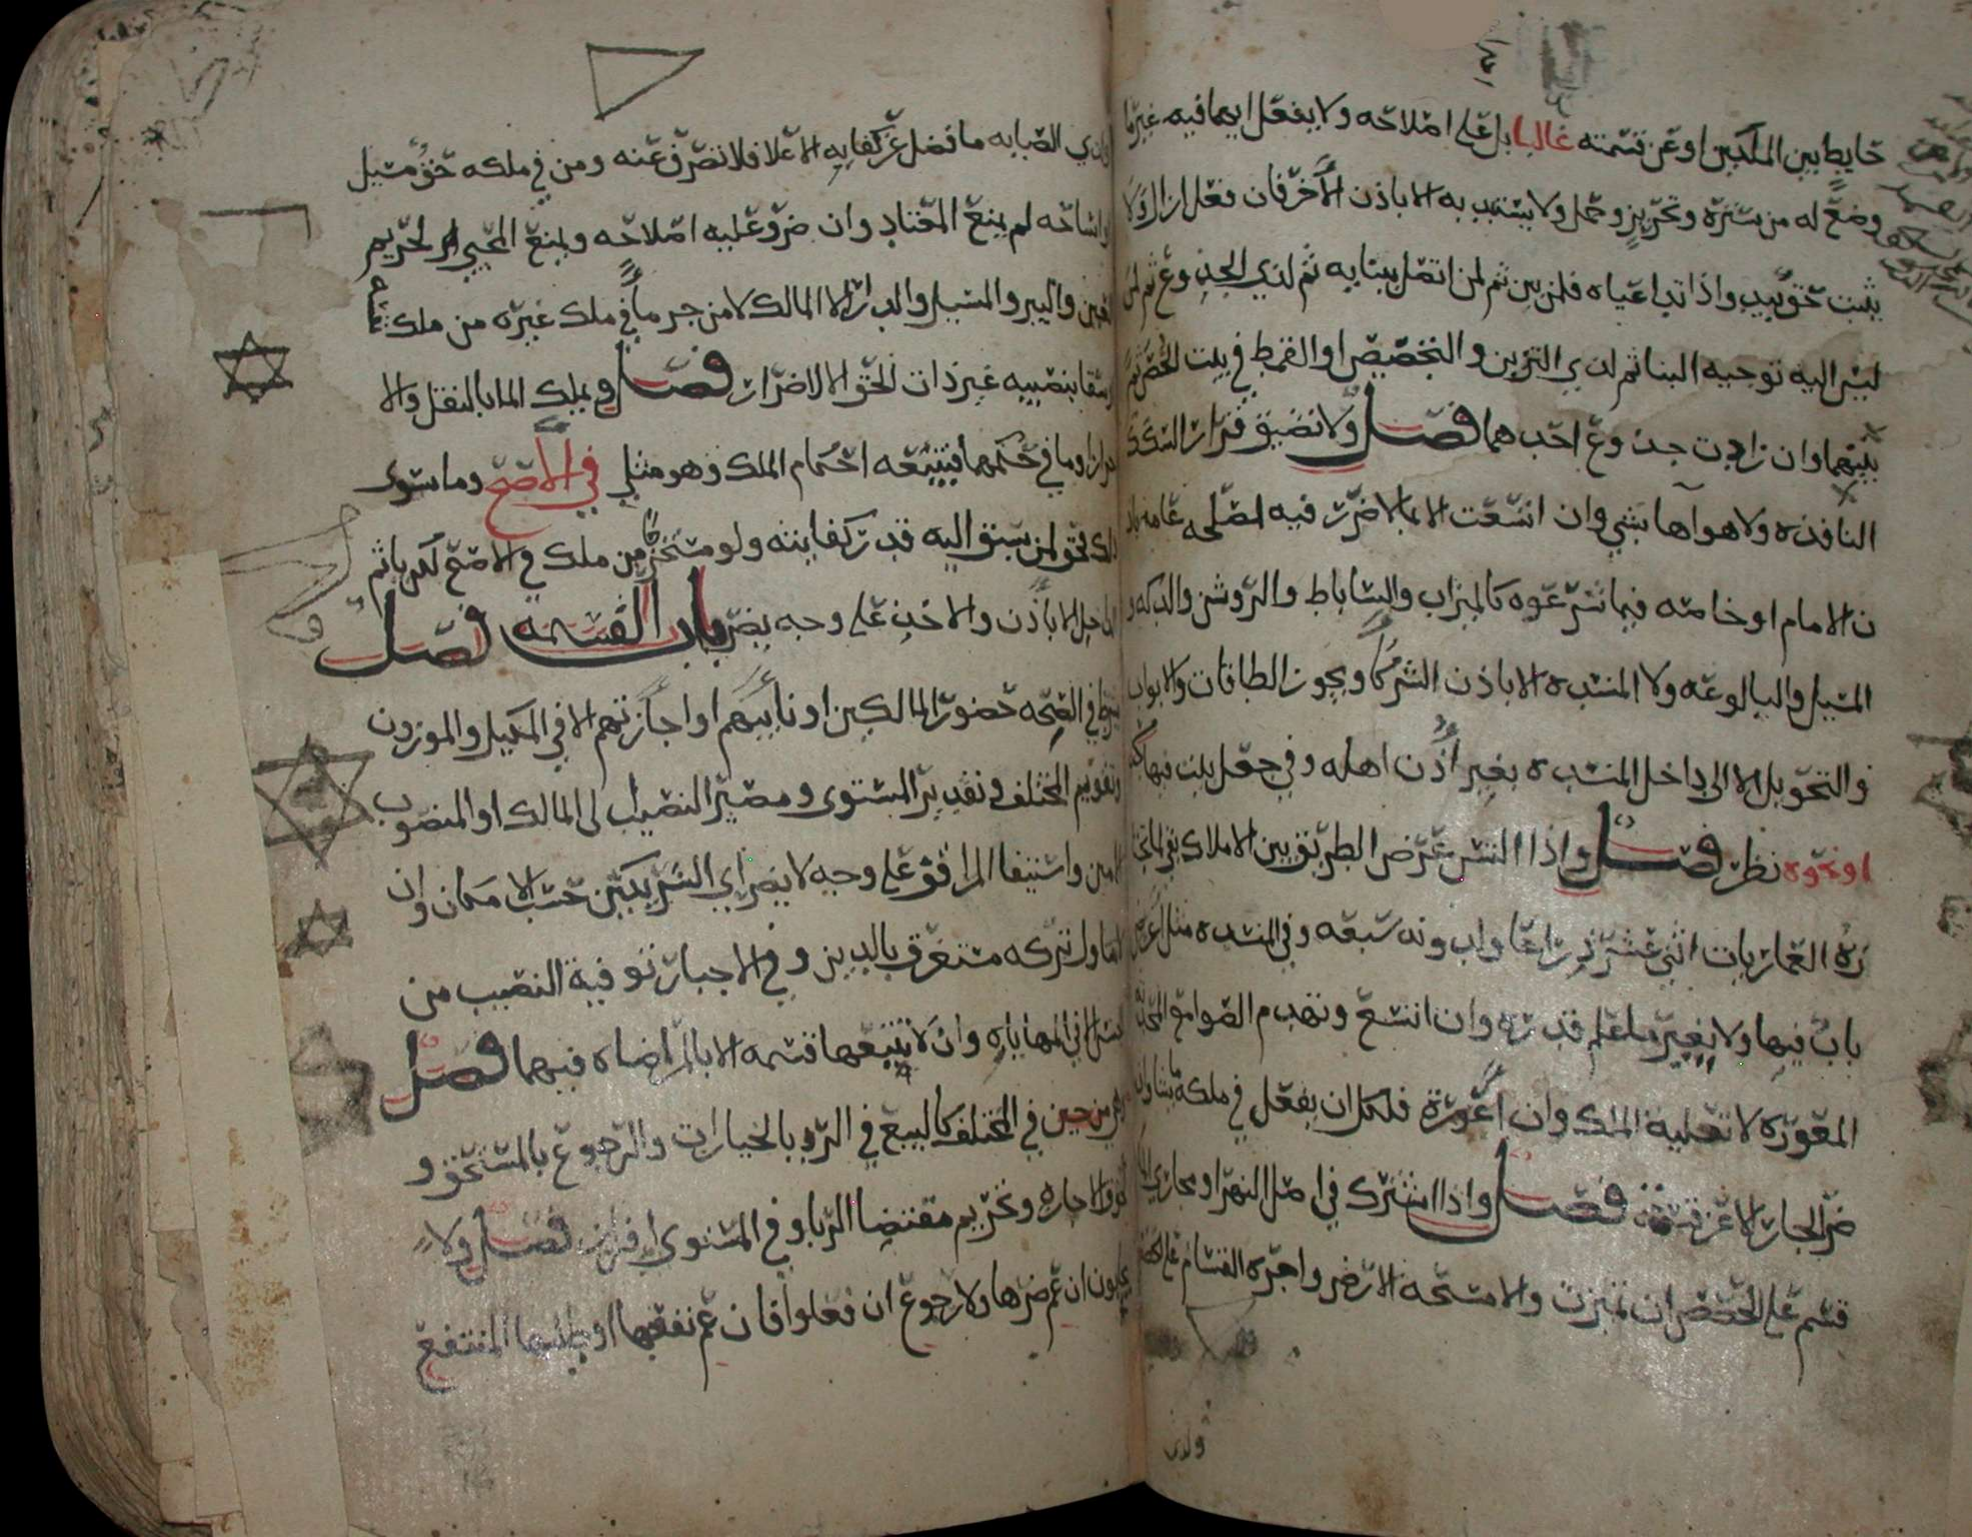 حايط بين الملكين او عن قسمته غالبا بل على اصلاحه ولا يفعل ايهما فيه غير ما
وضع له من سترة وتحريز وحمل ولا يستبد به الا باذن الآخر فان فعل ازال ولا
يثبت حق بيد واذا تداعياه فلمن بين ثم لمن اتصل ببنايه ثم لذي الجذوع ثم لمن
ليس اليه توجيه البنا ثم لذي التزيين والتجصيص او القمط في بيت الخص ثم
بينهما وان زادت جذوع احدهما فصل ولا تضيق قرار السكك
النافذه ولا هواها بشي وان اتسعت الا بما لا ضرر فيه لمصلحه عامه باذ
ن الامام او خاصه فيما شرعوه كالميزاب والساباط والروشن والدكه و
المسيل والبالوعه ولا المنسده الا باذن الشركا ويجوز الطاقات والابواب
والتحويل لا الى داخل المنسده بغير اذن اهله وفي جعل بيت فيها
او نحوه نظر فصل واذا التبس عرض الطريق بين الاملاك بقي لما تجتا
زه العماريات اثني عشر ذراعا ولدونه سبعه وفي المنسده مثل اعرض
باب فيها ولا يغير ما علم قدره وان اتسع وتهدم الصوامع المحدثه
المعوره لا تعلية الملك وان اعورت فلكل ان يفعل في ملكه ما شا وان
ضر الجار الا عن قسمة فصل واذا اشترك في اصل النهر او مجاري الما
قسم على الحصص ان تميزت والا مسحه الارض واجره القسام على الحصص
ولذي
ولذي الصبابه ما فضل عن كفايه الاعلا فلا تصرف عنه ومن في ملكه حق مسيل
او اساحه لم يمنع المعتاد وان ضر وعليه اصلاحه ويمنع المحيي لحريم
العين والبير والمسيل والدار الا المالك لا من جر ما في ملك غيره من ملك
او سقا بنصيبه غير ذات الحق الا لاضرار فصل ويملك الما بالنقل والا
حراز وما في حكمهما فيتبعه احكام الملك وهو مثلي في الاصح وما سوى
ذلك فحق لمن سبق اليه قدر كفايته ولو مستخرجا من ملك في الاصح لكن ياثم
الداخل الا باذن والاخذ على وجه يضر باب القسمة فصل
يشترط في الصحه حضور المالكين او نايبهم او اجازتهم الا في المكيل والموزون
وتقويم المختلف وتقدير المستوي ومصير النصيب الى المالك او المنصوب
الامين واستيفا المرافق على وجه لا يضر اي الشريكين حسب الامكان وان
لا تتناول تركه مستغرق بالدين وفي الاجبار توفية النصيب من
الجنس الا في المهاياه وان لا تتبعها قسمه الا بالمراضاه فيهما فصل
وهي من حين في المختلف كالبيع في الرد بالخيارات والرجوع بالمستحق و
لحوق الاجازه وتحريم مقتضا الربا وفي المستوي افراز فصل ولا
يجابون ان عم ضرها ولا رجوع ان فعلوا فان عم نفعها او طلبها المنتفع